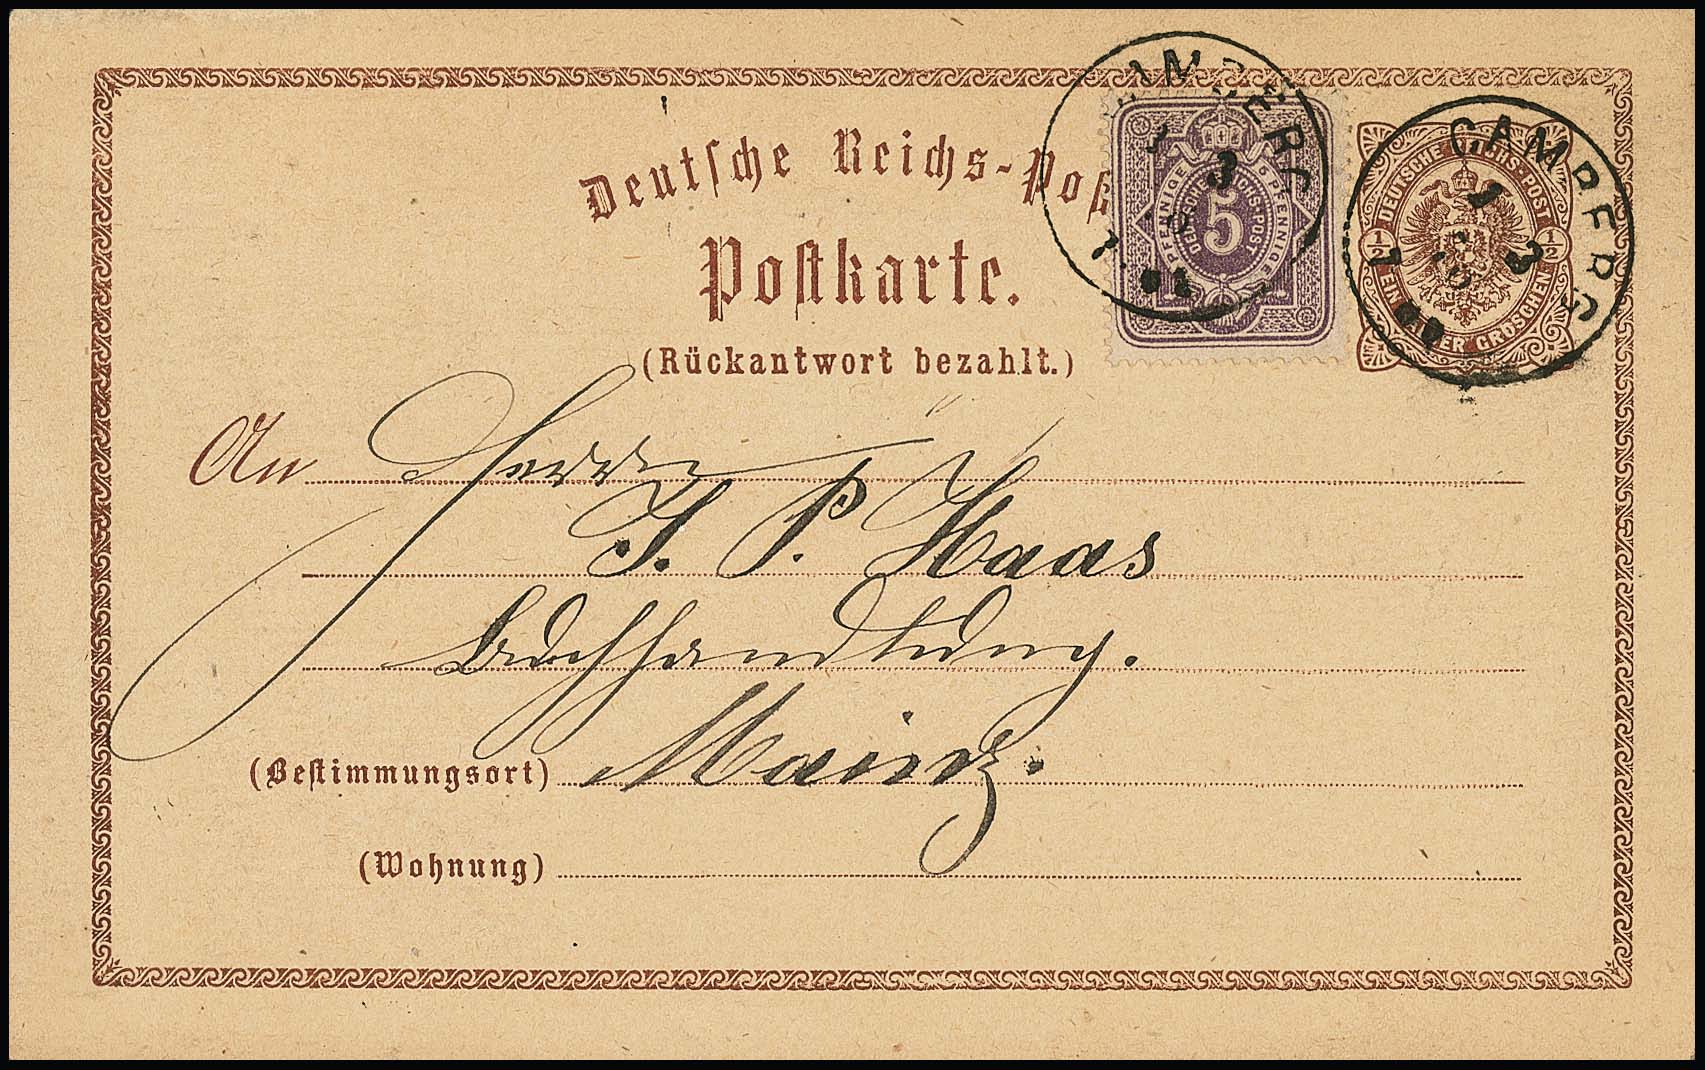 Deutsche Reichs-Post
Postkarte.
(Rückantwort bezahlt.)
5 PFENNIGE
DEUTSCHE REICHS-POST
5
PFENNIGE
CAMBERG
DEUTSCHE REICHS-POST
1/2 1/2
EIN HALBER GROSCHEN
CAMBERG
An Herrn
J. P. Haas
Buchhandlung.
(Bestimmungsort) Mainz.
(Wohnung)